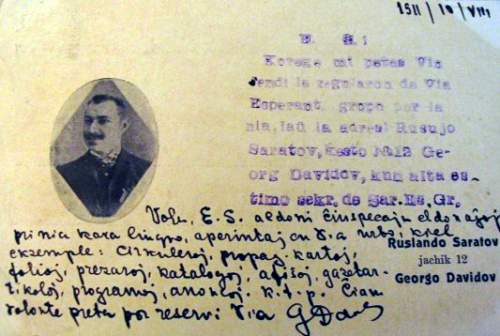 1911 / 10 / VIII
E. S!
Korege mi petas Vin
sendi la regularon de Via
Esperant. grupo por la
nia, laŭ la adreso Rusujo
Saratov, kesto №12 Ge-
org Davidov, kun alta es-
timo sekr. de Sar. Es. Gr.
Volu, E.S. aldoni ĉiuspecajn eldonaĵojn
pri nia kara lingvo, aperintaj en Via urbo, kiel
ekzemple: Cirkuleroj, propag. kartoj,
folioj, prezaroj, katalogoj, afiŝoj, gazetar-
tikoloj, programoj, anoncoj k.t.p. Ĉiam
volonte preta por reservi Via GDavid
Ruslando Saratov
jachik 12
Georgo Davidov